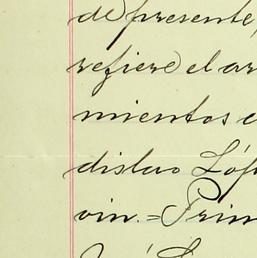 de presente,
refiere el ar
mientos e
dislao Lóp
vin.=Prim